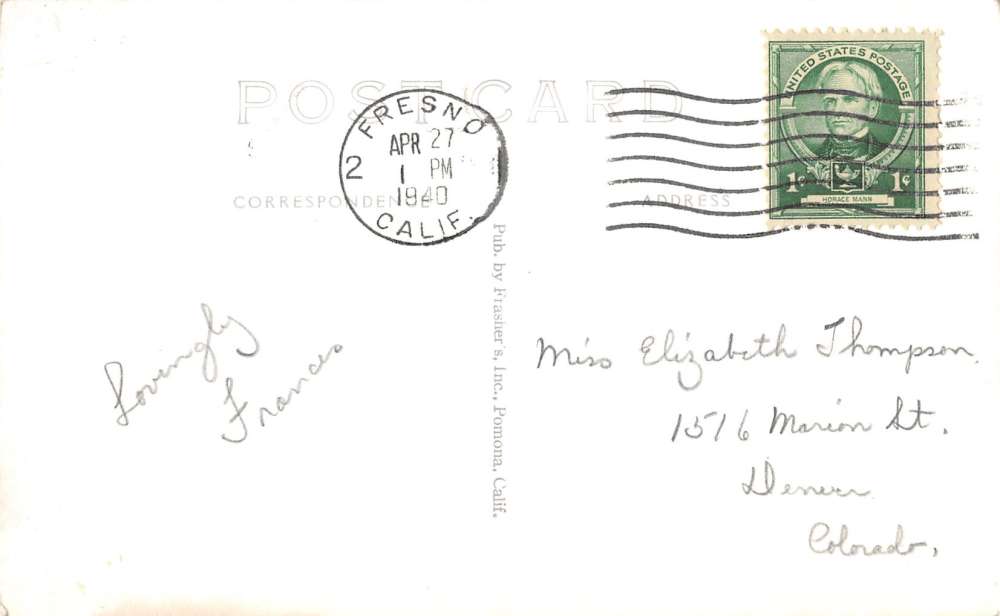 POST CARD
FRESNO
APR 27
2
1 PM
1940
CALIF.
UNITED STATES POSTAGE
1¢ 1¢
HORACE MANN
CORRESPONDEN
ADDRESS
Pub. by Frasher's, Inc., Pomona, Calif.
Lovingly
Frances
Miss Elizabeth Thompson
1516 Marion St.
Denver
Colorado,